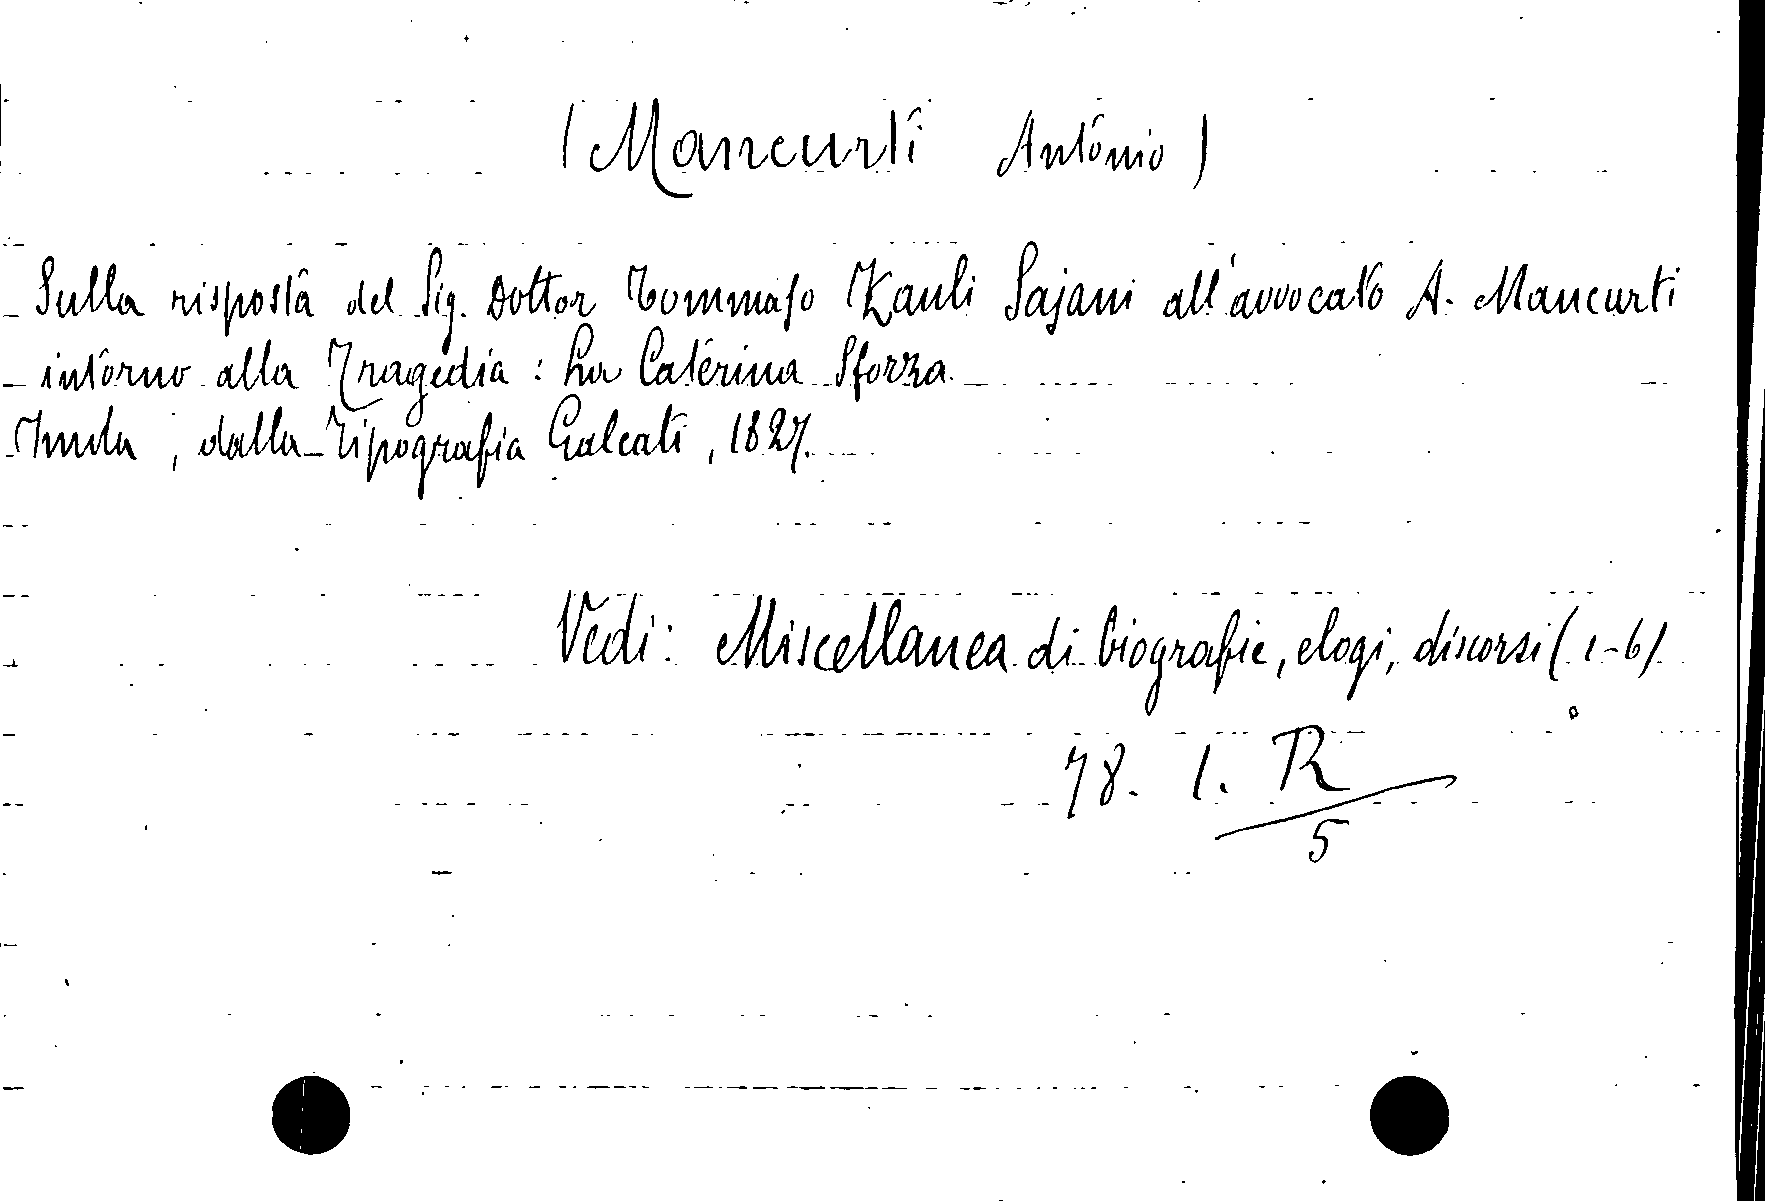 (Mancurti Antonio)
Sulla risposta del Sig. Dottor Tommaso Zauli Sajani all'avvocato A. Mancurti
intorno alla Tragedia: La Caterina Sforza
Imola, dalla Tipografia Galeati, 1827.
Vedi: Miscellanea di biografie, elogi, discorsi (1-6)
78. 1. R
5